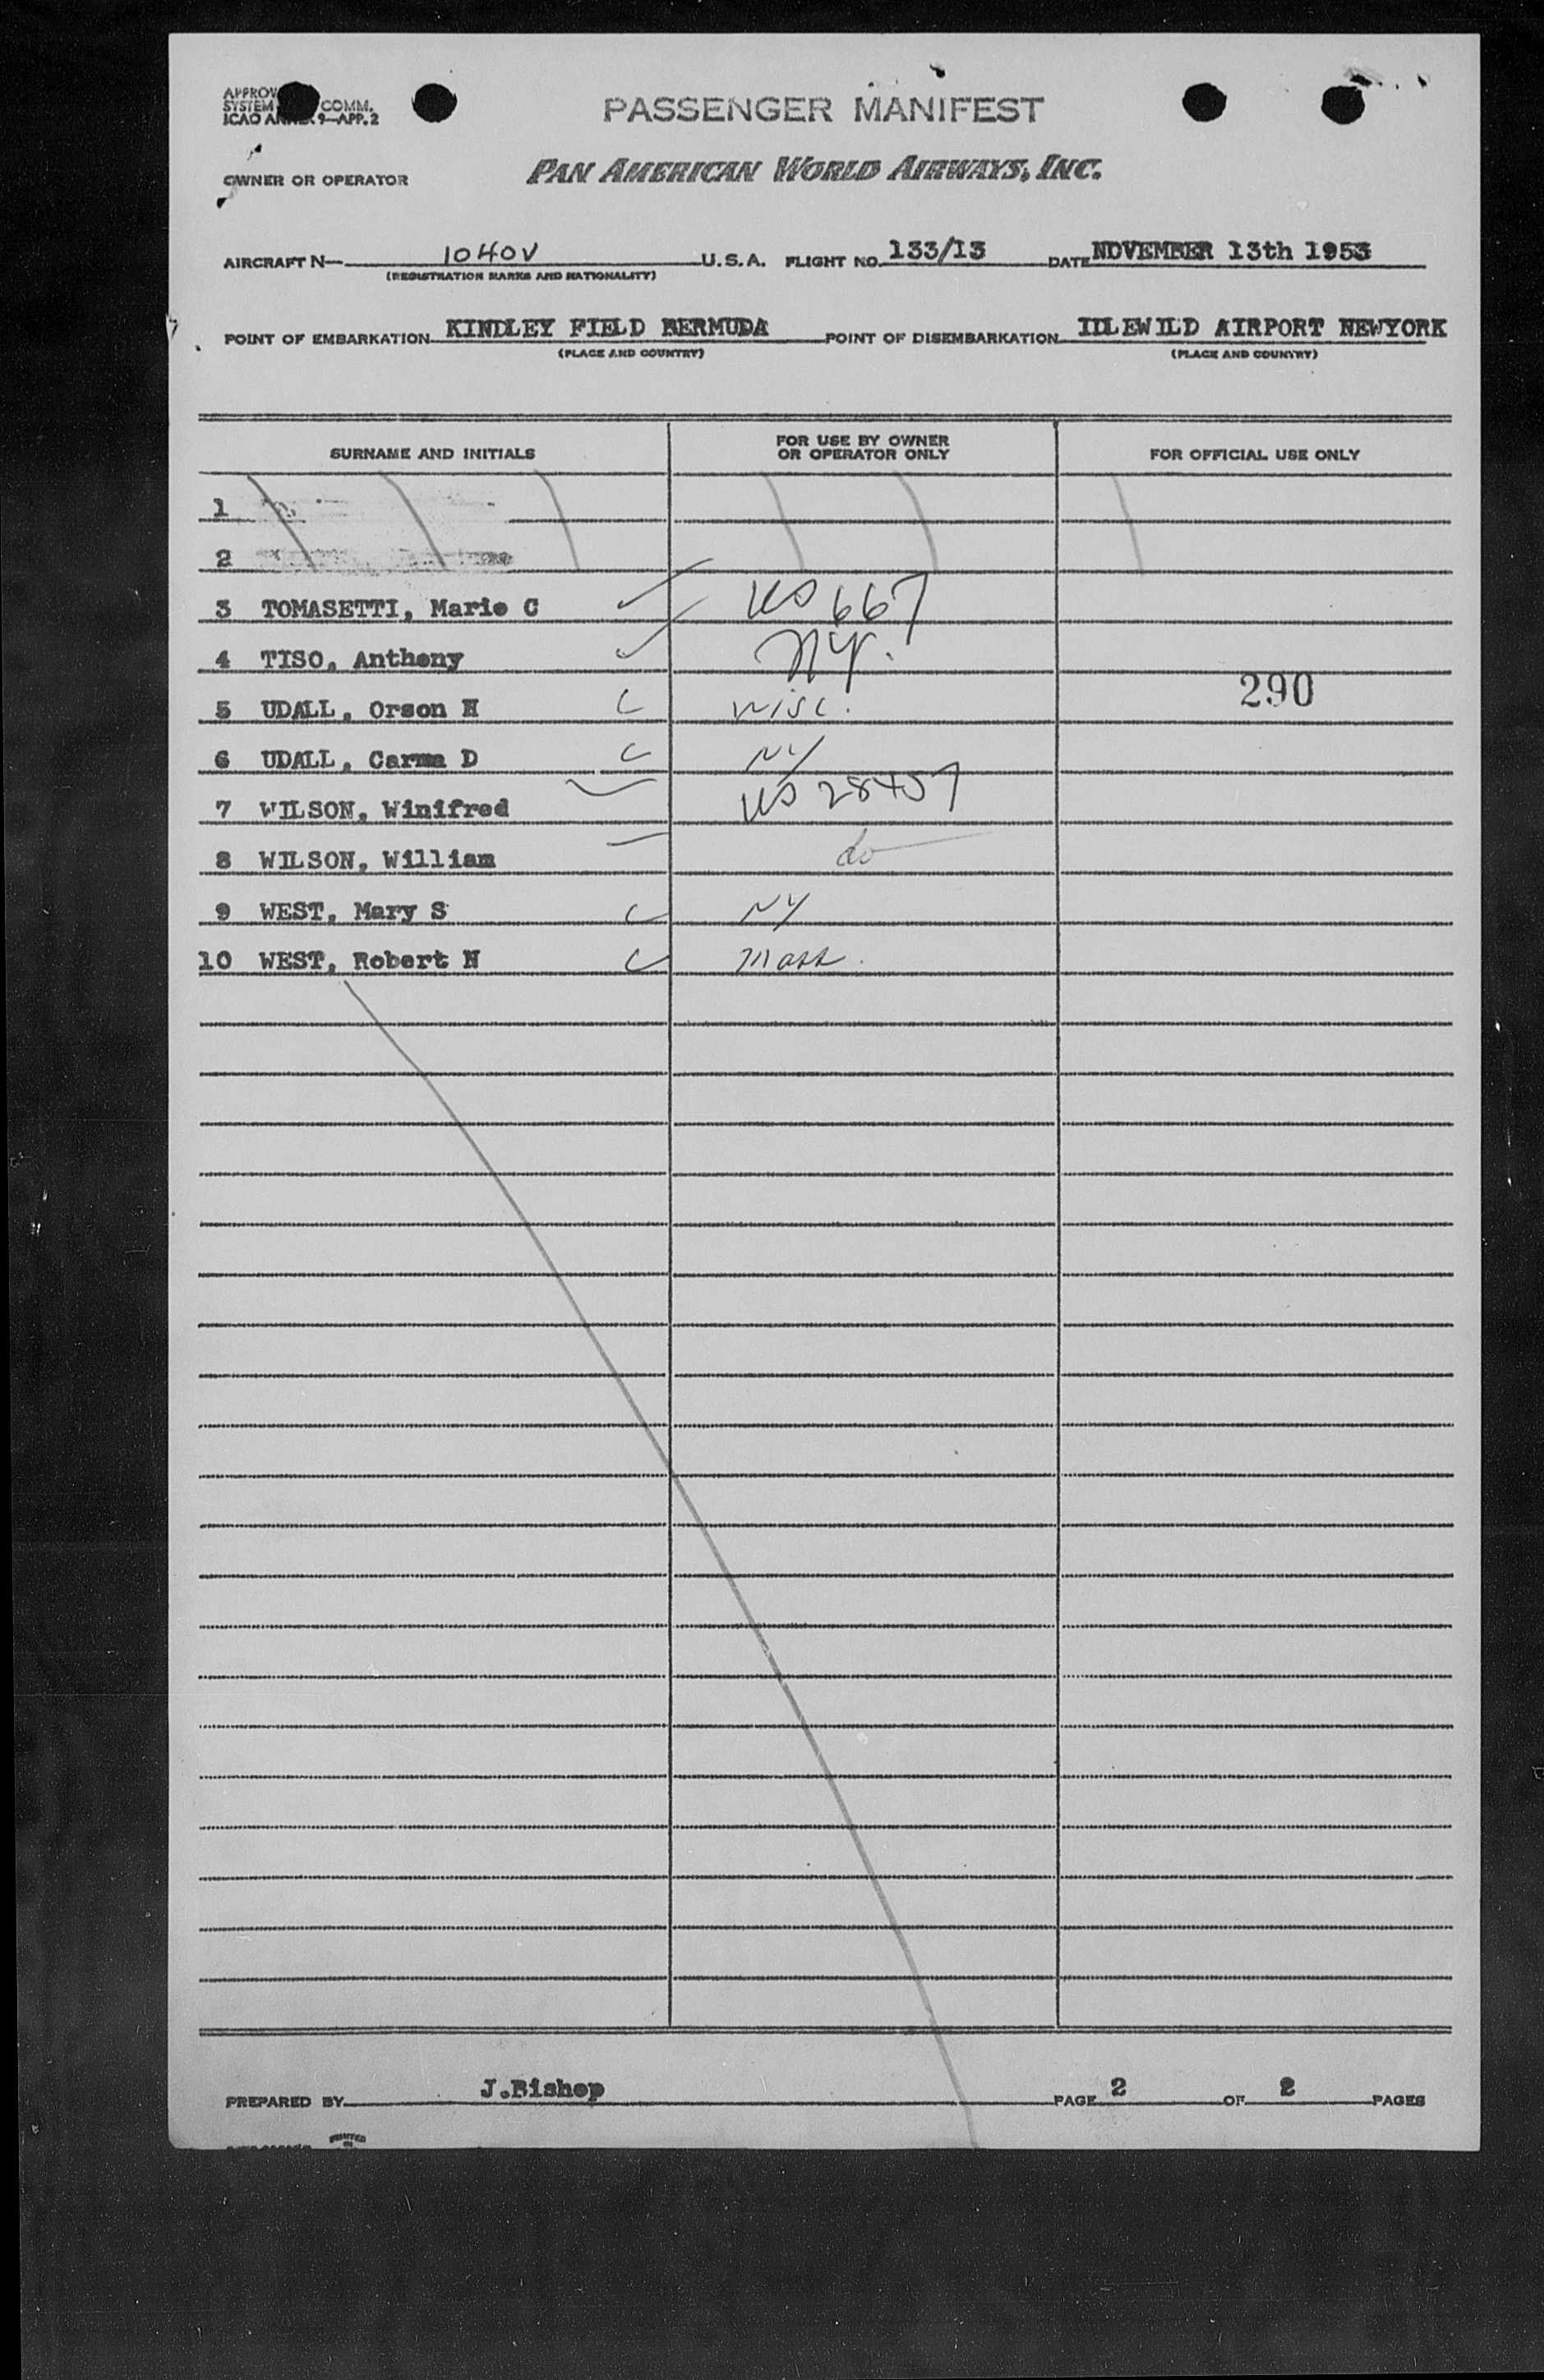 PASSENGER MANIFEST
SYSTEM COMM.
ICAO 9—APP. 2
OWNER OR OPERATOR PAN AMERICAN WORLD AIRWAYS, INC.
AIRCRAFT N— 1040V U.S.A. FLIGHT NO. 133/13 DATE NOVEMBER 13th 1953
(REGISTRATION MARKS AND NATIONALITY)
POINT OF EMBARKATION KINDLEY FIELD BERMUDA POINT OF DISEMBARKATION IDLEWILD AIRPORT NEWYORK
(PLACE AND COUNTRY) (PLACE AND COUNTRY)
SURNAME AND INITIALS FOR USE BY OWNER OR OPERATOR ONLY FOR OFFICIAL USE ONLY
1
2
3 TOMASETTI, Marie C 667
4 TISO, Anthony NY.
290
5 UDALL, Orson H Wisc.
6 UDALL, Carma D NY
7 WILSON, Winifred
8 WILSON, William do
9 WEST, Mary S NY
10 WEST, Robert N Mass.
PREPARED BY J.Bishop PAGE 2 OF 2 PAGES
PRINTED